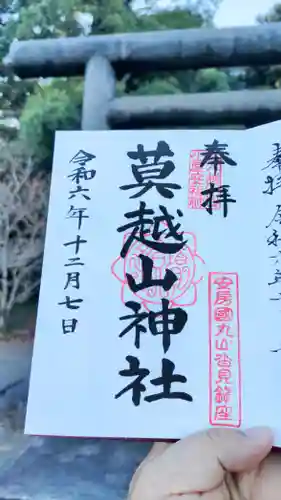 奉拝
莫越山神社
令和六年十二月七日
安房國丸山沓見鎮座